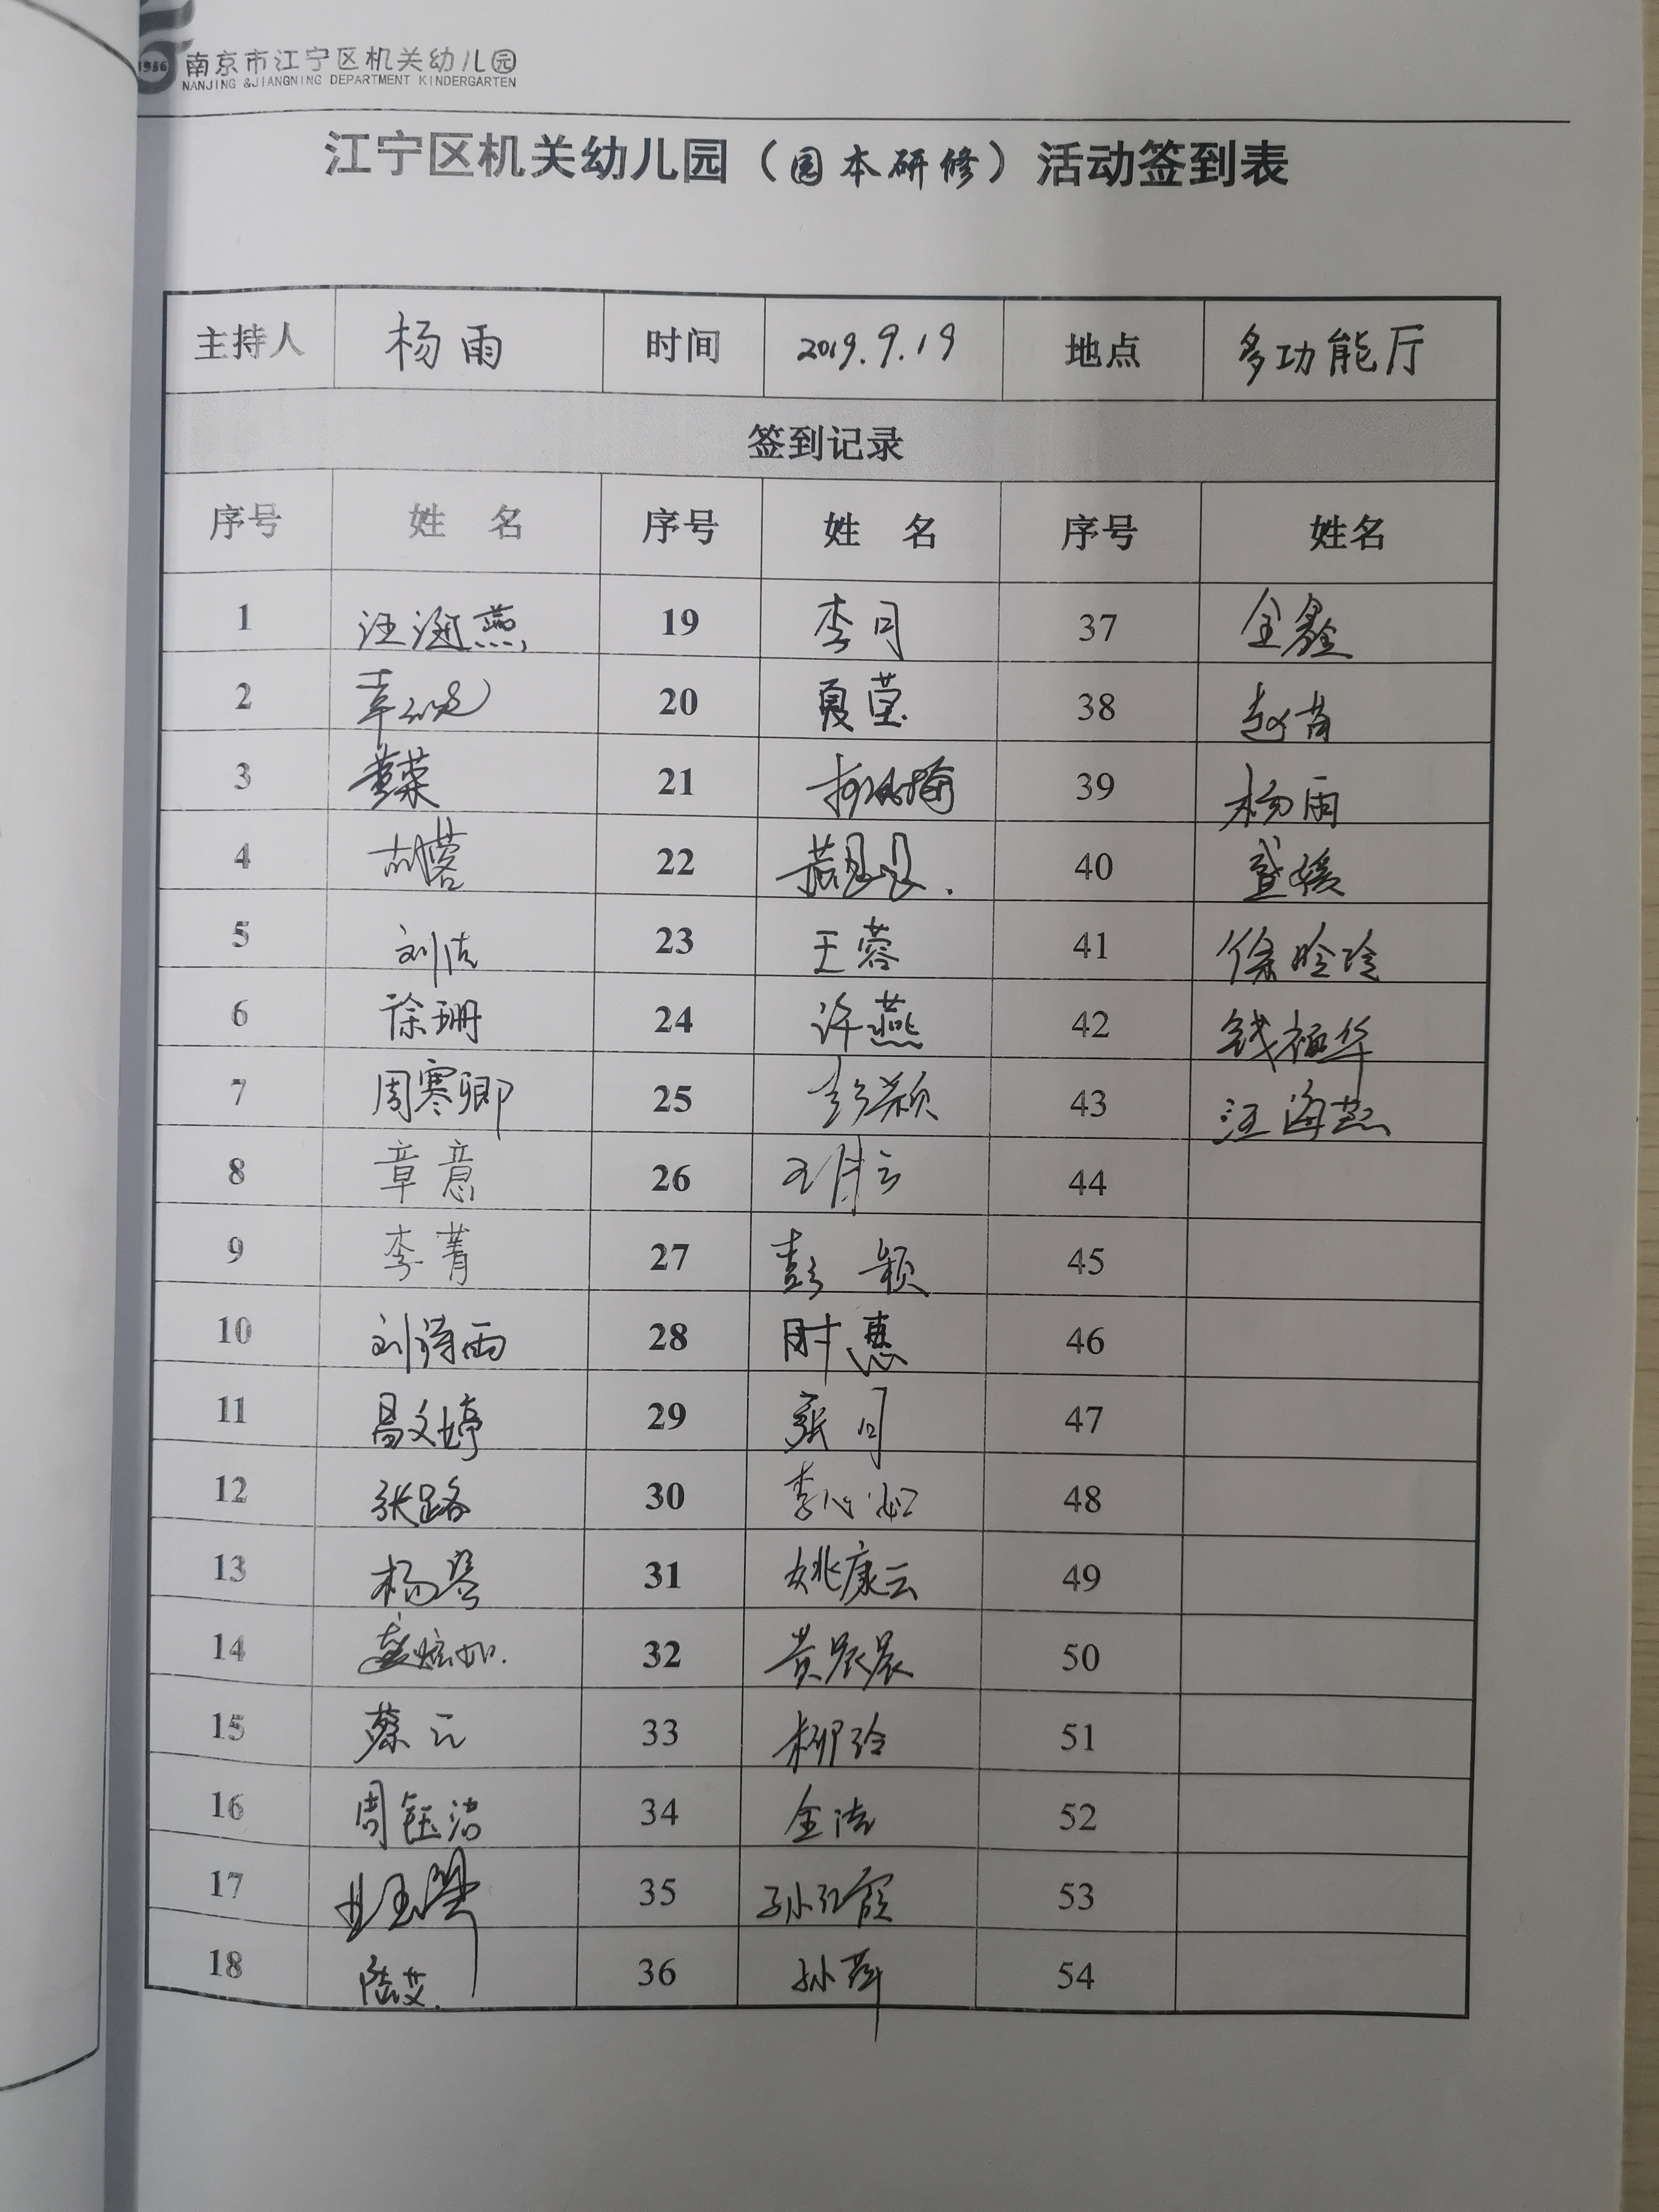 1956
南京市江宁区机关幼儿园
NANJING &JIANGNING DEPARTMENT KINDERGARTEN
江宁区机关幼儿园（园本研修）活动签到表
主持人 杨雨 时间 2019.9.19 地点 多功能厅
签到记录
序号 姓 名 序号 姓 名 序号 姓名
1 19 李月 37 金鑫
2 20 夏莹 38 赵青
3 黄荣 21 39 杨雨
4 胡蓉 22 40 盛媛
5 刘洁 23 王蓉 41 徐晗玲
6 徐珊 24 许燕 42 钱福华
7 周寒卿 25 彭颖 43 汪海燕
8 章意 26 王月云 44
9 李菁 27 彭颖 45
10 刘诗雨 28 时惠 46
11 昌文婷 29 张月 47
12 张路 30 48
13 杨琴 31 姚康云 49
14 32 黄晨晨 50
15 蔡云 33 柳玲 51
16 周钰洁 34 金洁 52
17 35 孙红霞 53
18 陆艾 36 孙萍 54